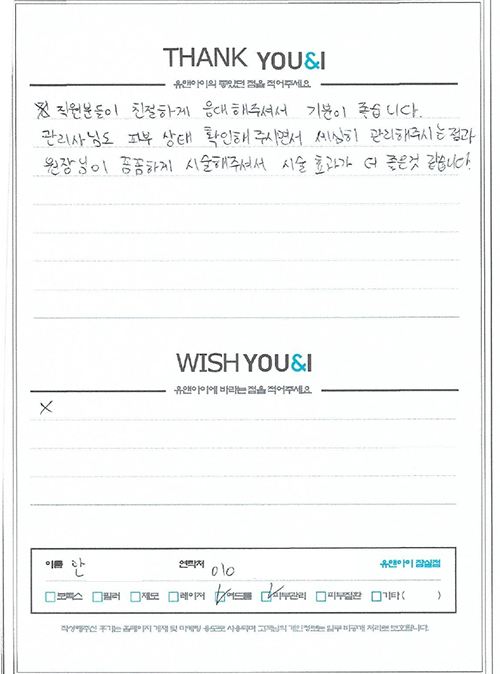 THANK YOU&I
유앤아이의 좋았던 점을 적어주세요
직원분들이 친절하게 응대해주셔서 기분이 좋습니다.
관리사님도 피부 상태 확인해 주시면서 세심히 관리해주시는점과
원장님이 꼼꼼하게 시술해주셔서 시술 효과가 더 좋은것 같습니다.
WISH YOU&I
유앤아이에 바라는 점을 적어주세요
X
이름 안 연락처 010 유앤아이 잠실점
보톡스 필러 제모 레이저 여드름 피부관리 피부질환 기타 ( )
작성해주신 후기는 홈페이지 게재 및 마케팅 용도로 사용되며 고객님의 개인정보는 일부 비공개 처리로 보호됩니다.